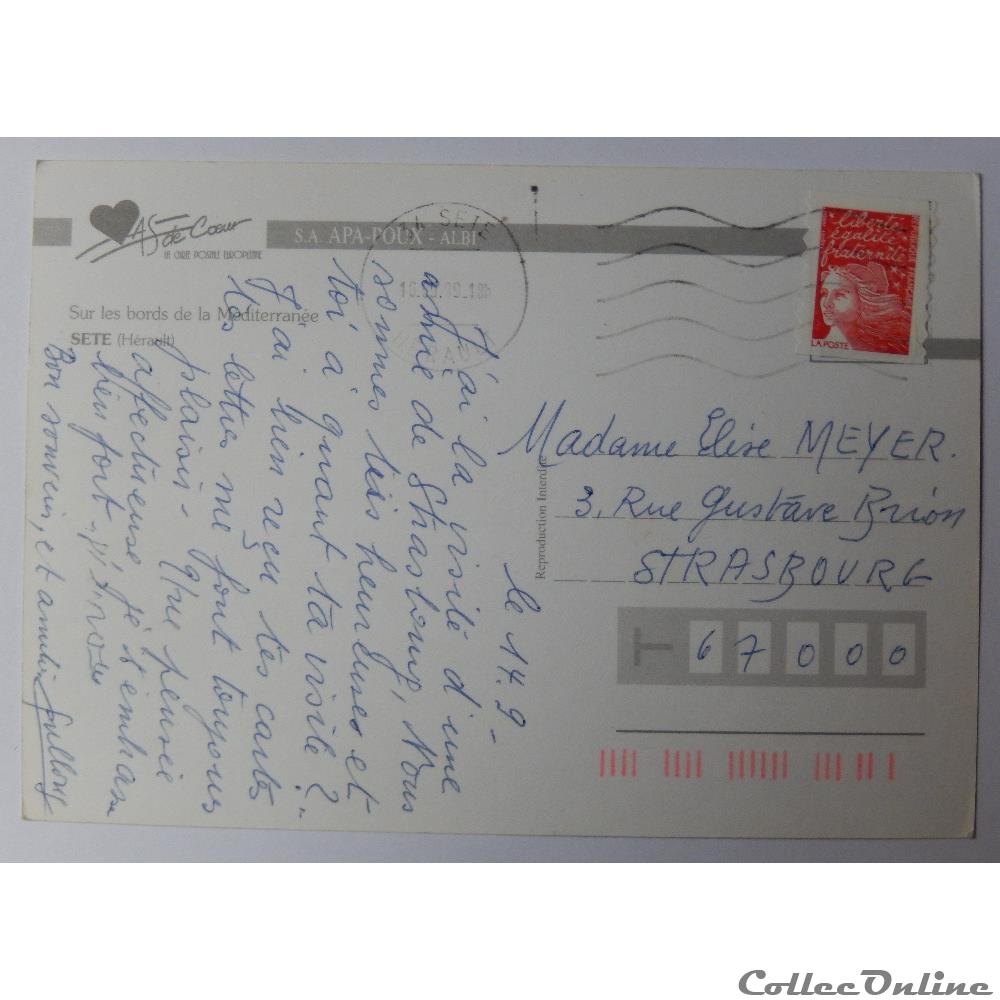 AS de Cœur
LA CARTE POSTALE EUROPEENNE
S.A. APA-POUX - ALBI
Sur les bords de la Méditerranée
SETE (Hérault)
SETE
18h
liberté
égalité
fraternité
LA POSTE
le 14.9-
J'ai la visite d'une
amie de Strasbourg, Nous
sommes très heureuses et
toi à quant ta visite ?
J'ai bien reçu tes cartes
tes lettres me font toujours
plaisir - Une pensée
affectueuse je t'embrasse
bien fort
Bon souvenir, et amitié
Reproduction Interdite
Madame Elise MEYER.
3, Rue Gustave Brion
STRASBOURG
67000
CollecOnline